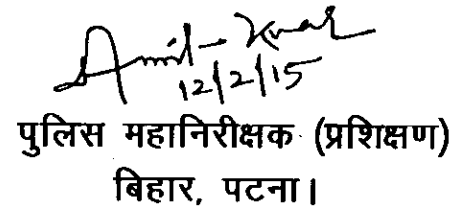 Amit Kumar
12/2/15
पुलिस महानिरीक्षक (प्रशिक्षण)
बिहार, पटना।